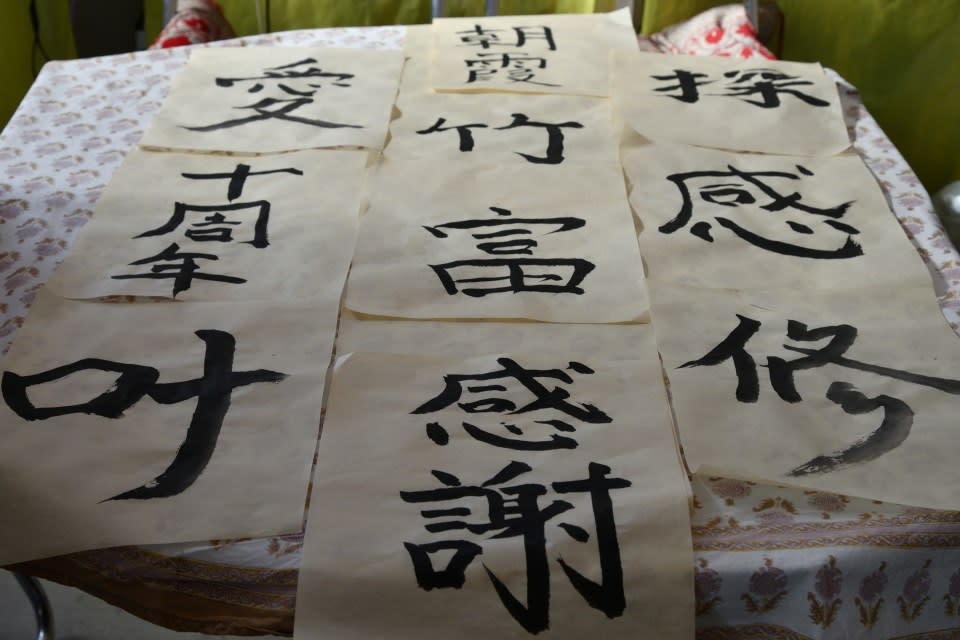 愛
十周年
叶
朝霞
竹富
感謝
探
感
修